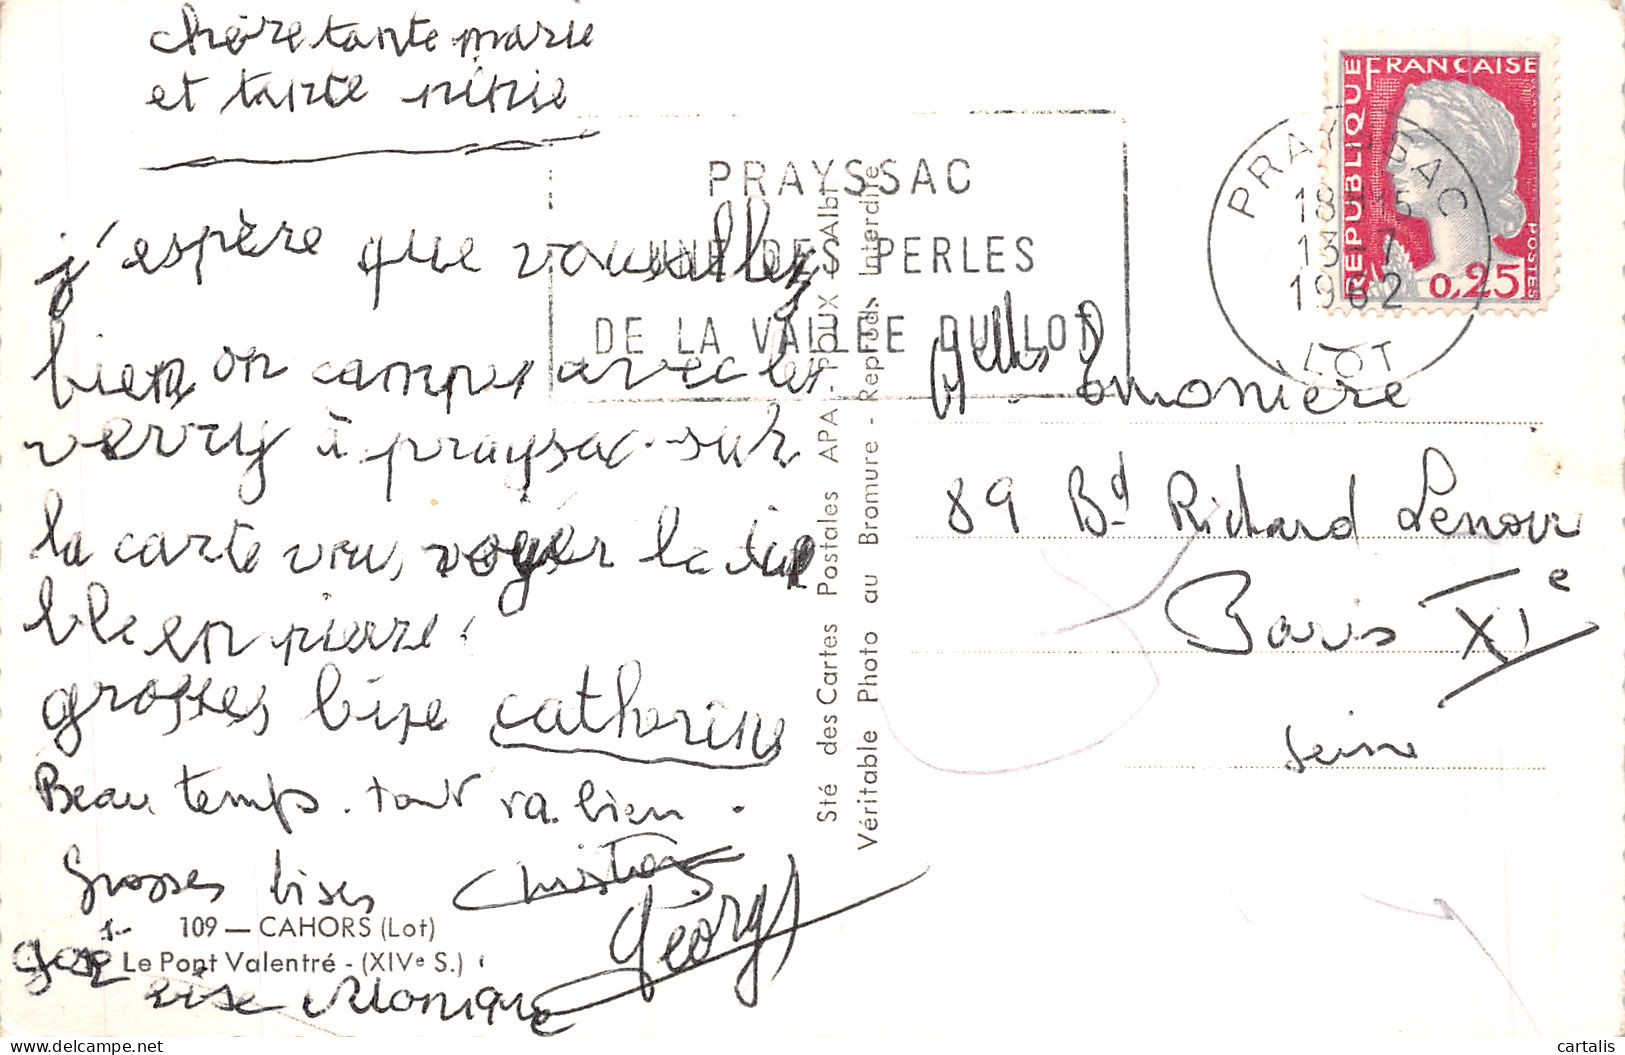 chère tante marie
et tante ninie
j'espère que vous allez
bien on campe avec les
verry à praysac. sur
la carte vous voyer le dia
ble en pierre.
grosses bise catherine
Beau temps. tout va bien.
Grosses bises Christian
Georges
gros
bise Monique
109 — CAHORS (Lot)
Le Pont Valentré - (XIVe S.)
Sté des Cartes Postales APA - POUX - Albi
Véritable Photo au Bromure - Reprod. Interdite
PRAYSSAC
UNE DES PERLES
DE LA VALLEE DU LOT
REPUBLIQUE FRANÇAISE
POSTES
0,25
PRAYSSAC
18H15
13-7
1962
LOT
Melles Lemonière
89 Bd Richard Lenoir
Paris XIe
Seine
cartalis